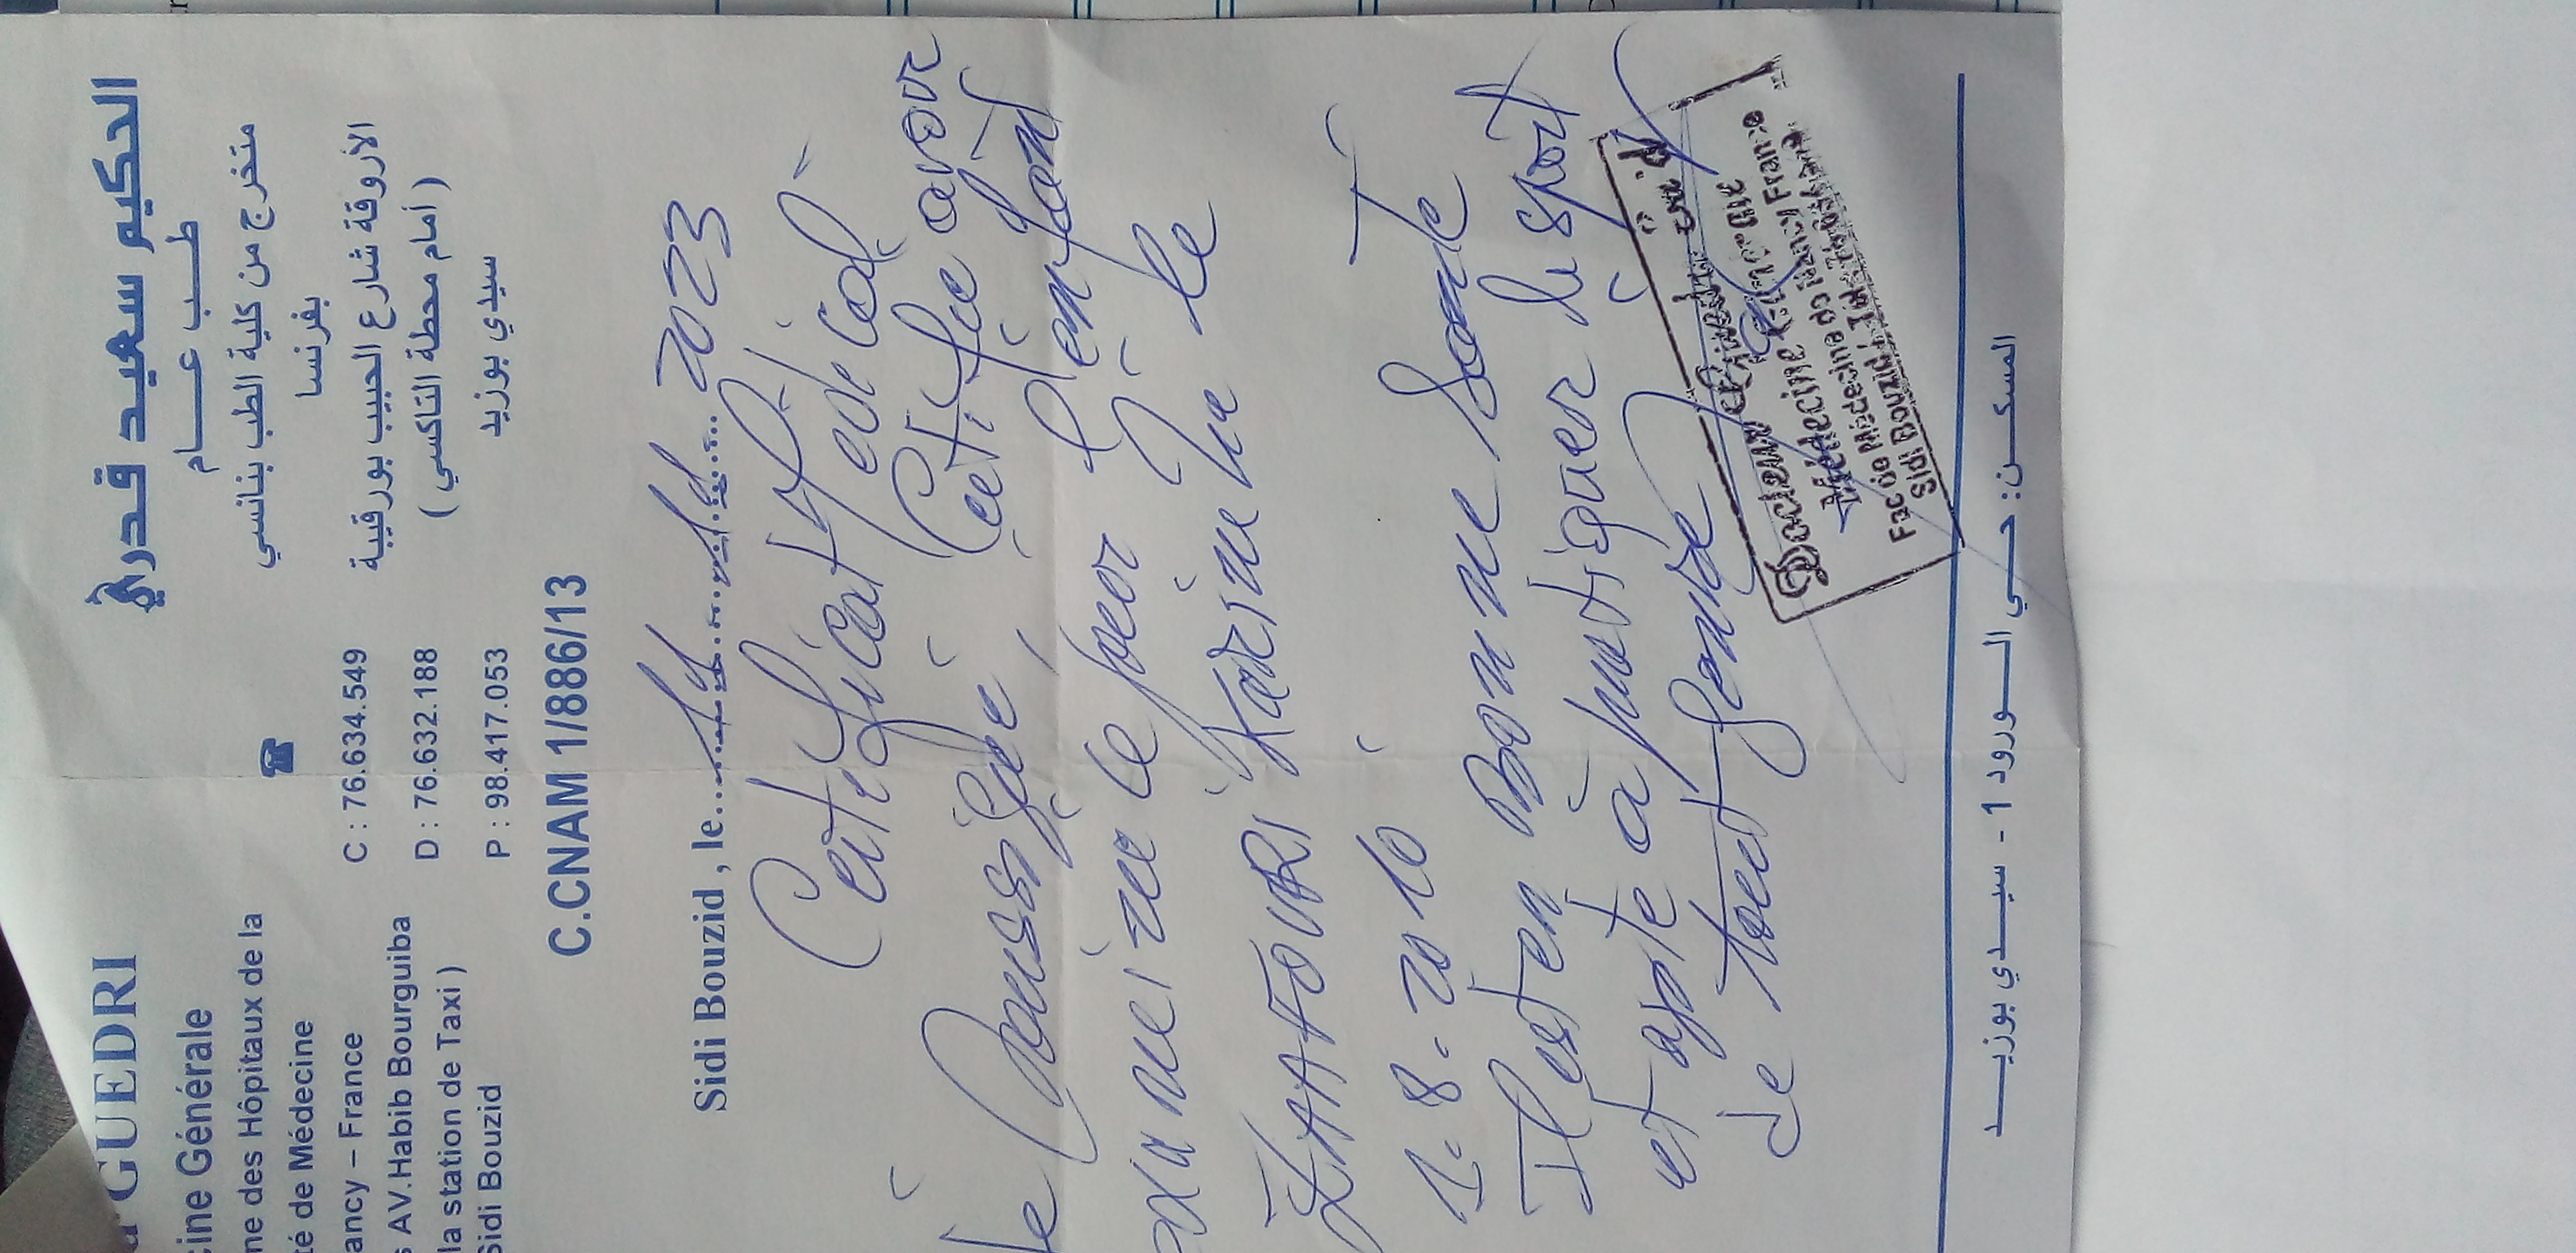 GUEDRI
cine Générale
ne des Hôpitaux de la
té de Médecine
ancy – France
s AV.Habib Bourguiba
la station de Taxi )
Sidi Bouzid
☎
C : 76.634.549
D : 76.632.188
P : 98.417.053
الحكيم سعيد قدري
طـــب عـــــام
متخرج من كلية الطب بنانسي
بفرنسا
الأروقة شارع الحبيب بورقيبة
( أمام محطة التاكسي )
سيدي بوزيد
C.CNAM 1/886/13
Sidi Bouzid , le 2023
Certificat Medical
Je Soussigné Certifie avoir
examiner ce jour l'enfant
Karim le
1. 8. 2010
Il est en Bonne Sante
et apte à pratiquer le sport
de tout genre
Docteur
Thérapeutique
Fac de Médecine de Nancy France
Sidi Bouzid
المسكـــن: حـــي الـــورود 1 - سيـــدي بوزيـــد